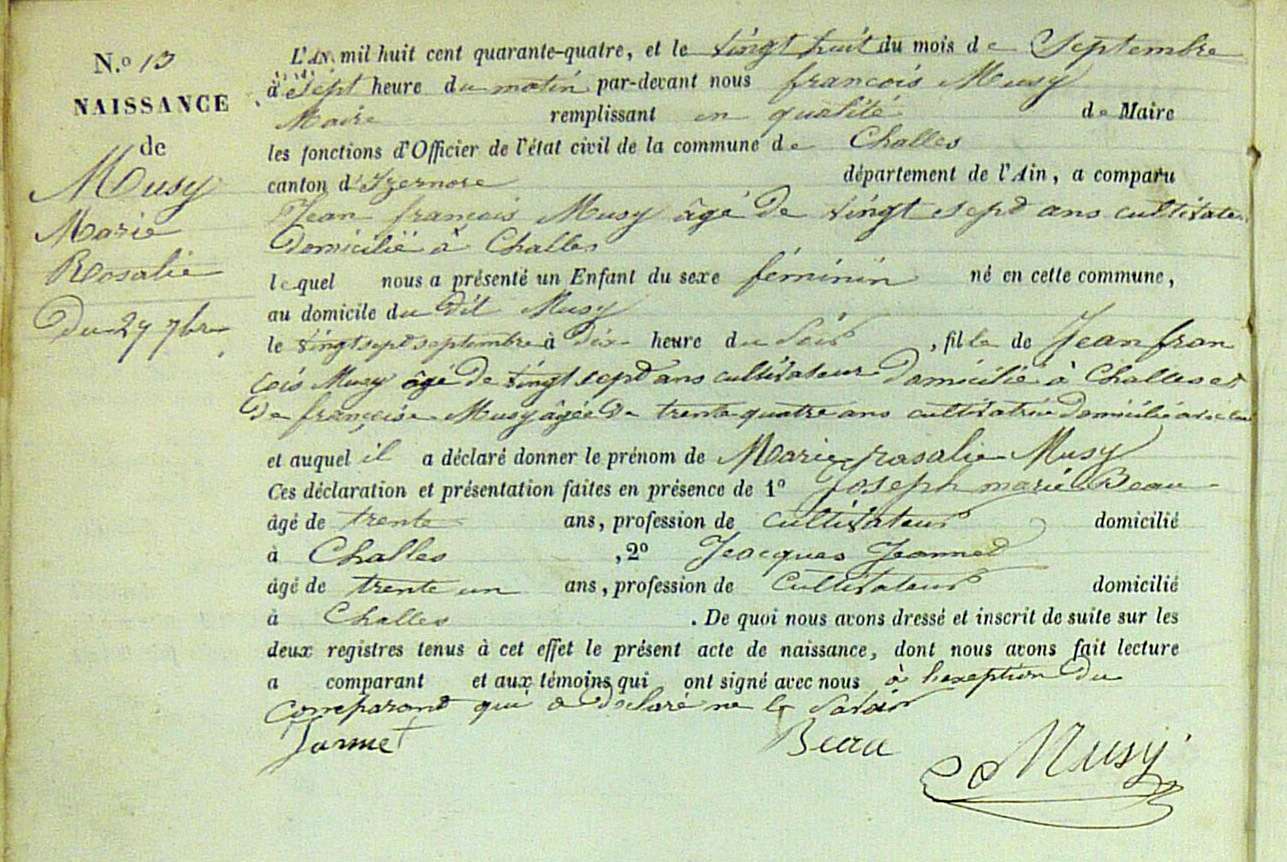 N.º 13
NAISSANCE
de
Musy
Marie
Rosalie
Du 27 7bre
L'AN mil huit cent quarante-quatre, et le vingt huit du mois de Septembre
à sept heure du matin par-devant nous francois Musy
Maire remplissant en qualité de Maire
les fonctions d'Officier de l'état civil de la commune de Challes
canton d'Izernore département de l'Ain, a comparu
Jean francois Musy âgé de vingt sept ans cultivateur
domicilié à Challes
lequel nous a présenté un Enfant du sexe féminin né en cette commune,
au domicile du dit Musy
le vingt sept septembre à dix heure du Soir, fille de Jean fran
cois Musy âgé de vingt sept ans cultivateur domicilié à Challes et
de françoise Musy âgée de trente quatre ans cultivatrice domicilié avec lui
et auquel il a déclaré donner le prénom de Marie rosalie Musy
Ces déclaration et présentation faites en présence de 1º Joseph marie Beau
âgé de trente ans, profession de cultivateur domicilié
à Challes, 2º Jacques Jeannet
âgé de trente un ans, profession de Cultivateur domicilié
à Challes. De quoi nous avons dressé et inscrit de suite sur les
deux registres tenus à cet effet le présent acte de naissance, dont nous avons fait lecture
a comparant et aux témoins qui ont signé avec nous à l'exeption du
comparant qui a déclaré ne le Savoir
Beau Musy